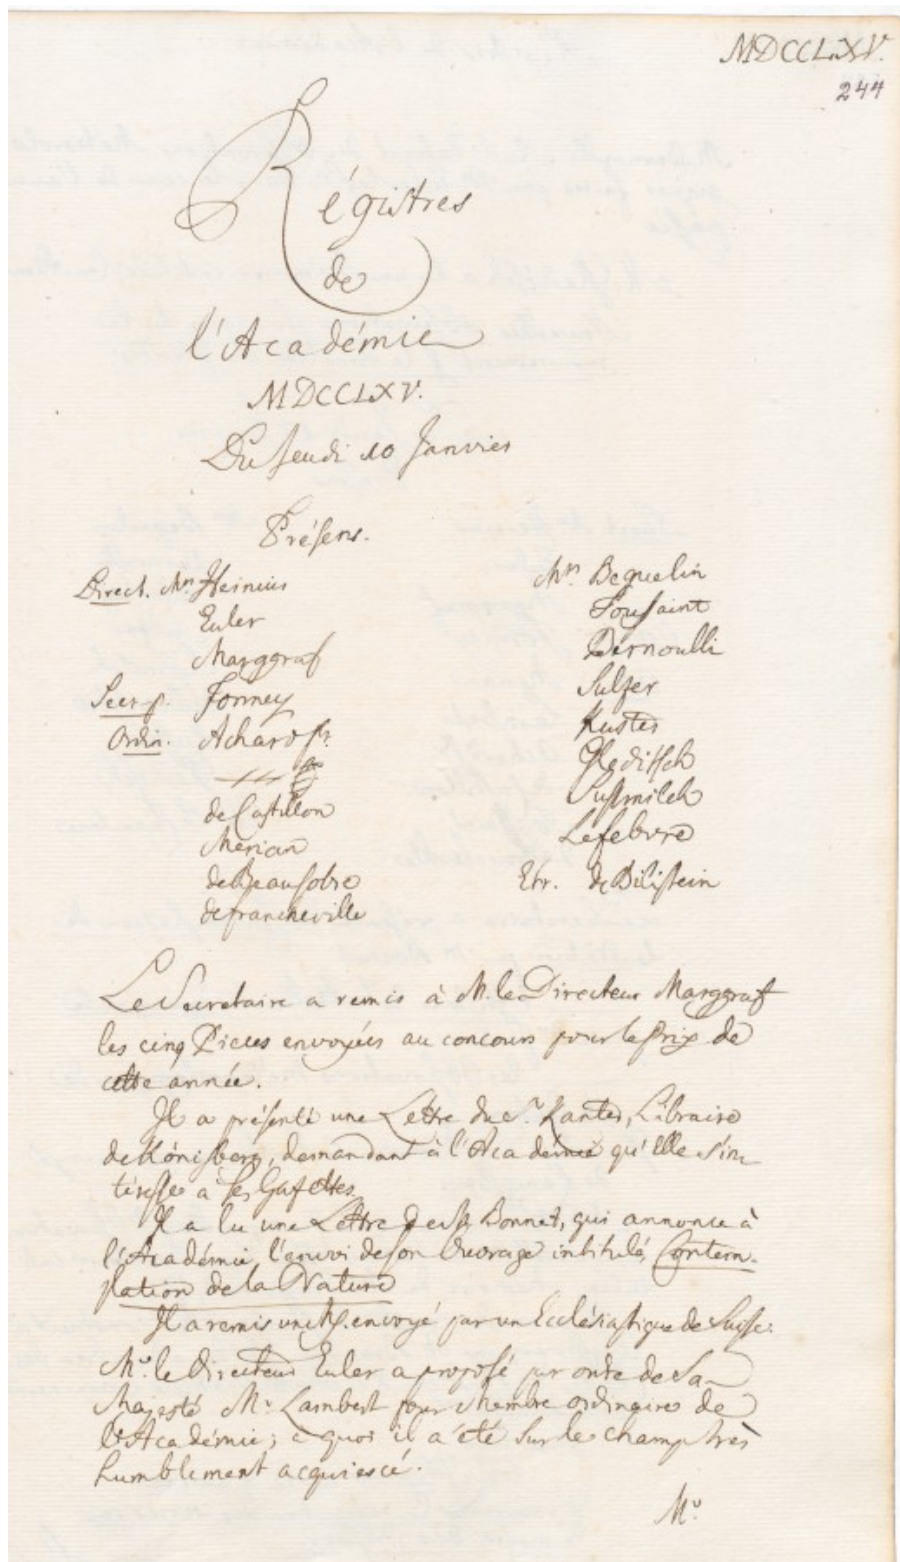 MDCCLXV.
244
Régistres
de
l'Académie
MDCCLXV.
Du Jeudi 10 Janvier
Présens.
Direct. Mrs. Heinius
Euler
Marggraf
Secr. p. Formey
Ordin. Achard Sr.
de Castillon
Merian
de Beausobre
de Francheville
Mrs. Beguelin
Toussaint
Bernoulli
Sulzer
Kuster
Gleditsch
Sussmilch
Lefebvre
Etr. de Bilistein
Le Secretaire a remis à M. le Directeur Marggraf
les cinq Pieces envoyées au concours pour le Prix de
cette année.
Il a présenté une Lettre du Sr. Kanter, Libraire
de Königsberg, demandant à l'Académie qu'Elle s'in-
téresse à ses Gazettes
Il a lu une Lettre de Mr. Bonnet, qui annonce à
l'Académie l'envoi de son Ouvrage intitulé, Contem-
plation de la Nature
Il a remis un Ms. envoyé par un Ecclésiastique de Suisse.
Mr. le Directeur Euler a proposé par ordre de Sa
Majesté Mr. Lambert pour Membre ordinaire de
l'Académie; à quoi il a été sur le champ très
humblement acquiescé.
Mr.